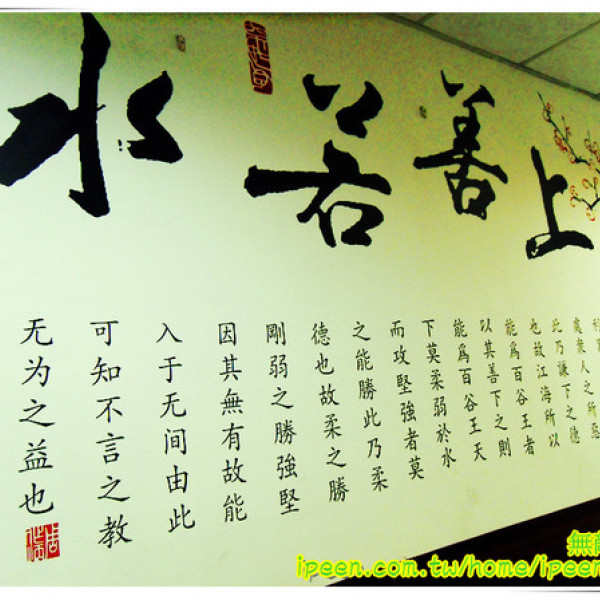 上善若水
處眾人之所惡
此乃謙下之德
也故江海所以
能為百谷王者
以其善下之則
能為百谷王天
下莫柔弱於水
而攻堅強者莫
之能勝此乃柔
德也故柔之勝
剛弱之勝強堅
因其無有故能
入于无间由此
可知不言之教
无为之益也
ipeen.com.tw/home/ipeen